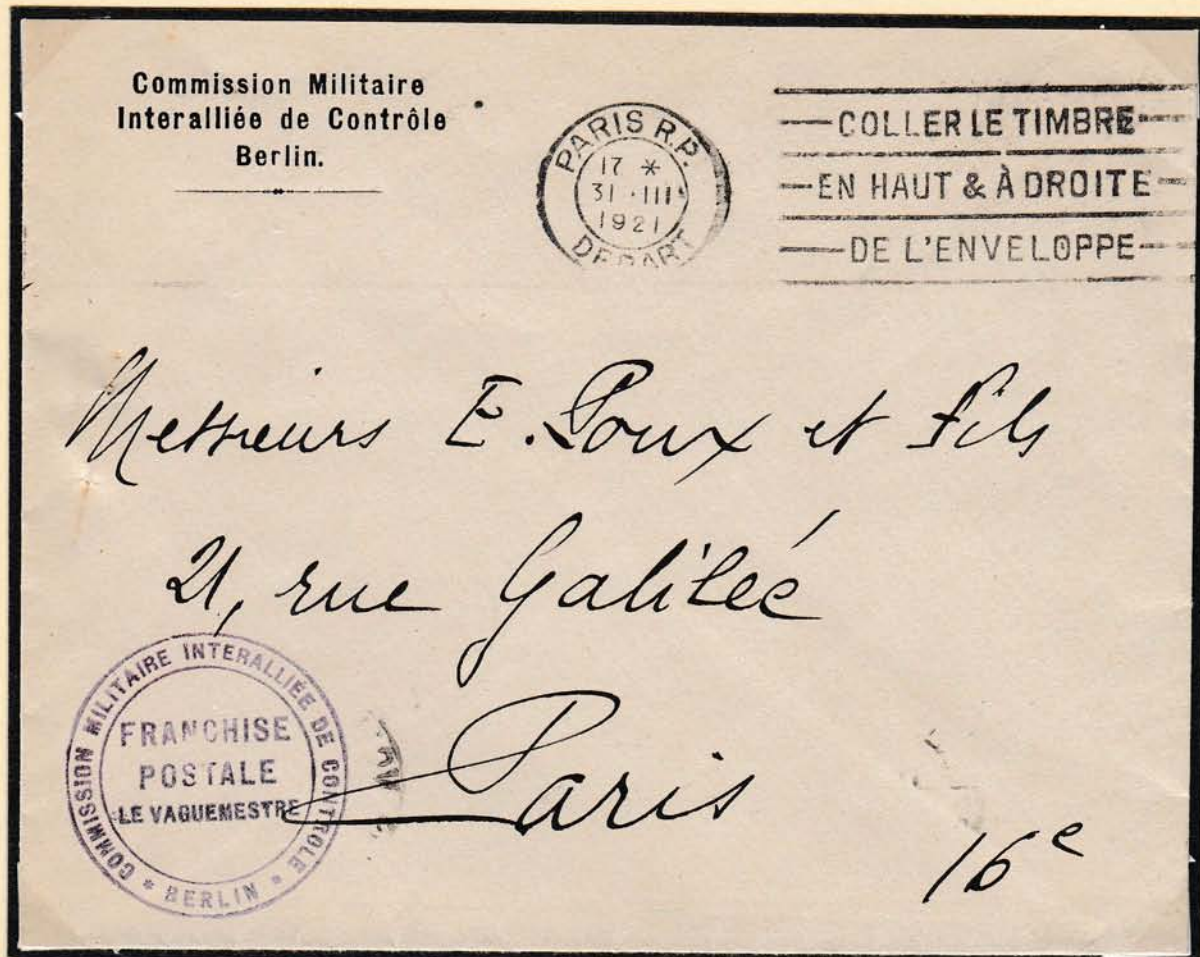 Commission Militaire
Interalliée de Contrôle
Berlin.
PARIS R.P.
17 *
31 · III
1921
DEPART
COLLER LE TIMBRE
EN HAUT & À DROITE
DE L'ENVELOPPE
Messieurs E. Poux et Fils
21, rue Galilée
Paris
16e
COMMISSION MILITAIRE INTERALLIÉE DE CONTROLE
FRANCHISE
POSTALE
LE VAGUEMESTRE
* BERLIN *